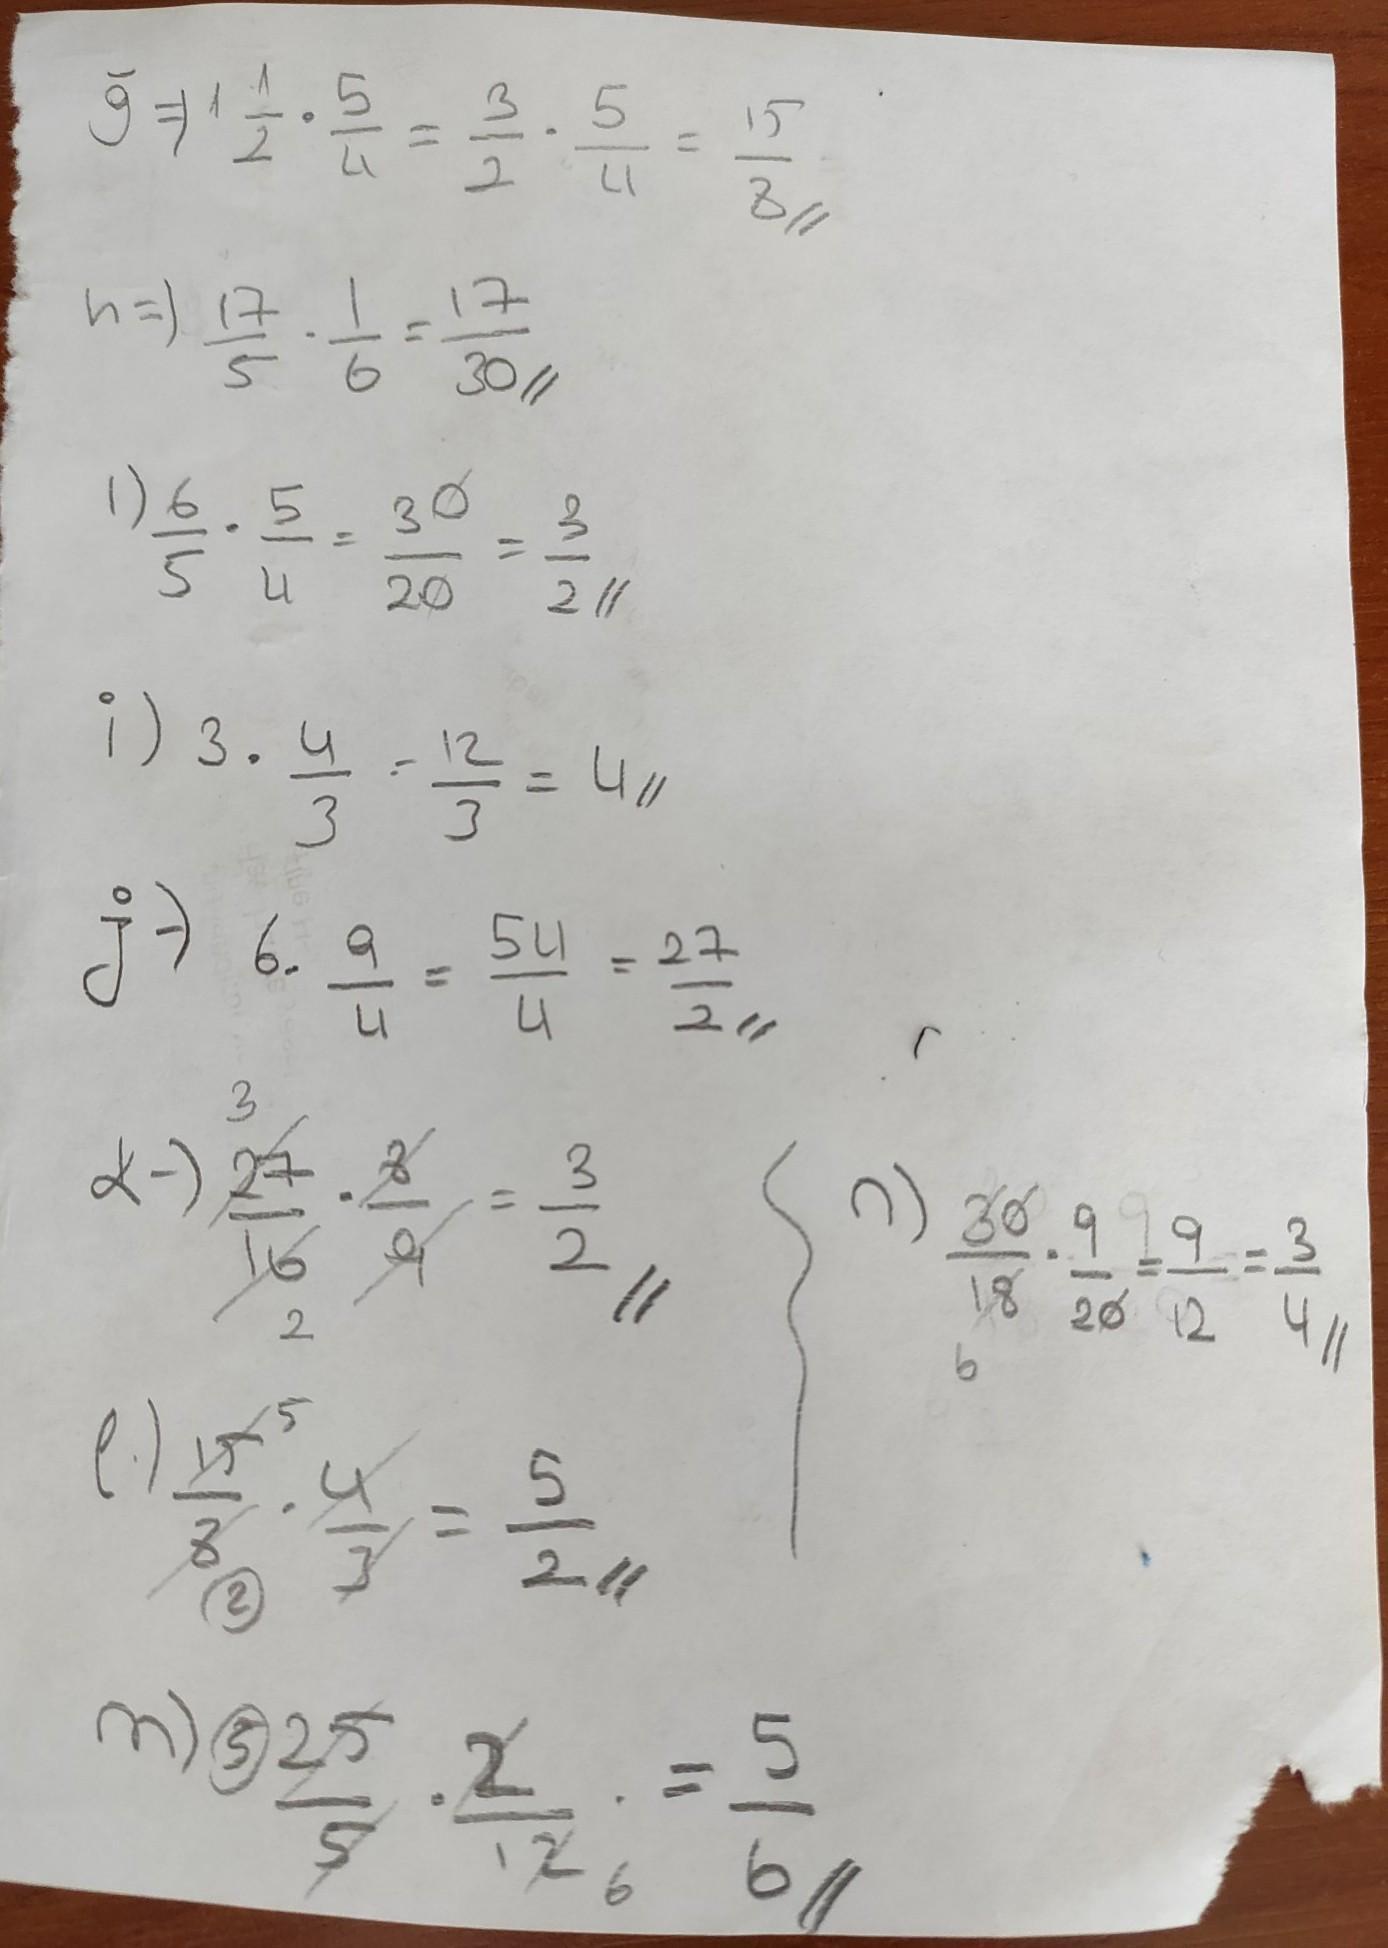 ğ => 1 1/2 · 5/4 = 3/2 · 5/4 = 15/8 //
h => 17/5 · 1/6 = 17/30 //
ı) 6/5 · 5/4 = 30/20 = 3/2 //
i) 3 · 4/3 = 12/3 = 4 //
j-) 6 · 9/4 = 54/4 = 27/2 //
3
k-) 27/16 · 8/9 = 3/2 //
2
l.) 15/8 · 4/3 = 5/2 //
5
2
m) 5 25/5 · 2/12 · = 5/6 //
6
n) 30/18 · 9/20 = 9/12 = 3/4 //
6